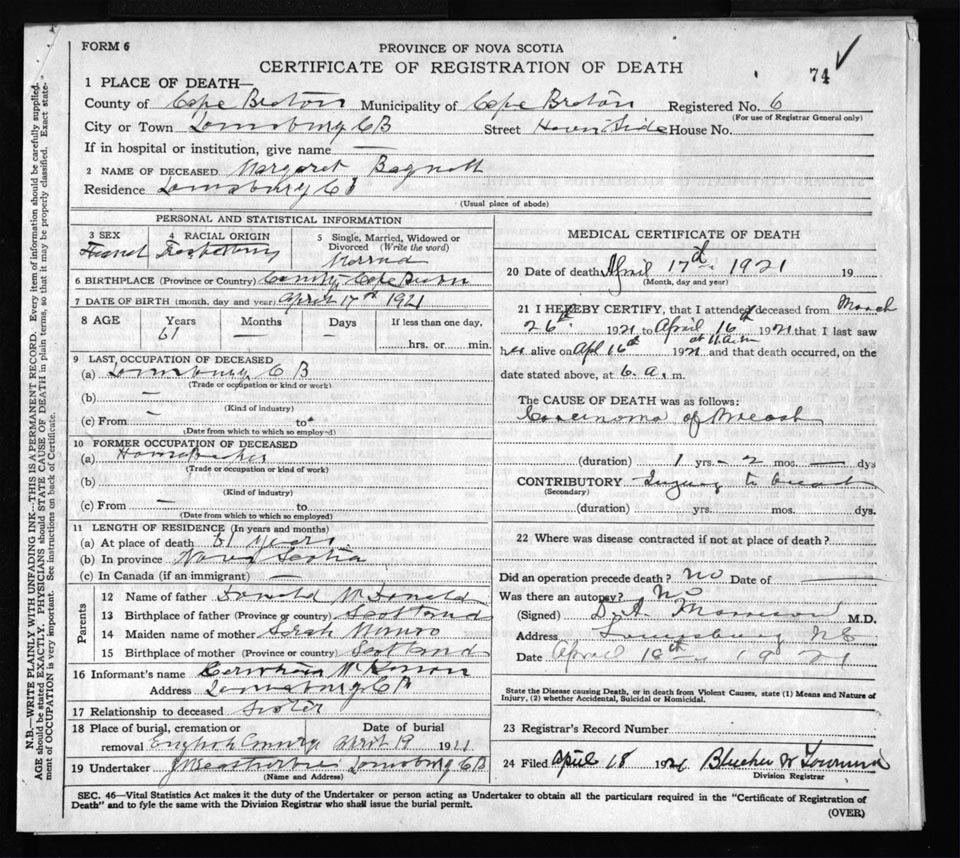 FORM 6
PROVINCE OF NOVA SCOTIA
CERTIFICATE OF REGISTRATION OF DEATH
74 ✓
1 PLACE OF DEATH—
County of Cape Breton Municipality of Cape Breton Registered No. 6
(For use of Registrar General only)
City or Town Louisburg CB Street House No.
If in hospital or institution, give name —
2 NAME OF DECEASED Margaret Bagnell
Residence Louisburg CB
(Usual place of abode)
PERSONAL AND STATISTICAL INFORMATION
3 SEX
4 RACIAL ORIGIN
5 Single, Married, Widowed or Divorced (Write the word)
6 BIRTHPLACE (Province or Country)
7 DATE OF BIRTH (month, day and year) April 17th 1921
8 AGE Years Months Days If less than one day,
61 — — hrs. or min.
9 LAST OCCUPATION OF DECEASED
(a) Louisburg C B
(Trade or occupation or kind or work)
(b) —
(Kind of industry)
(c) From to
(Date from which to which so employed)
10 FORMER OCCUPATION OF DECEASED
(a)
(Trade or occupation or kind of work)
(b)
(Kind of industry)
(c) From — to
(Date from which to which so employed)
11 LENGTH OF RESIDENCE (In years and months)
(a) At place of death 61 years
(b) In province Nova Scotia
(c) In Canada (if an immigrant) —
Parents
12 Name of father Donald McDonald
13 Birthplace of father (Province or country) Scotland
14 Maiden name of mother Sarah Munro
15 Birthplace of mother (Province or country) Scotland
16 Informant's name
Address Louisburg CB
17 Relationship to deceased Sister
18 Place of burial, cremation or removal Date of burial April 19 1921
19 Undertaker Louisburg CB
(Name and Address)
MEDICAL CERTIFICATE OF DEATH
20 Date of death April 17th 1921 19
(Month, day and year)
21 I HEREBY CERTIFY, that I attended deceased from March
26th 1921 to April 16th 1921 that I last saw
at 11 a.m
her alive on Apl 16th 1921 and that death occurred, on the
date stated above, at 6. a. m.
The CAUSE OF DEATH was as follows:
Carcinoma of Breast
(duration) 1 yrs 2 mos. — dys
CONTRIBUTORY Injury to breast
(Secondary)
(duration) yrs. mos. dys.
22 Where was disease contracted if not at place of death?
Did an operation precede death? no Date of —
Was there an autopsy? No
(Signed) M.D.
Address Louisburg NS
Date April 18th 1921
State the Disease causing Death, or in death from Violent Causes, state (1) Means and Nature of
Injury, (2) whether Accidental, Suicidal or Homicidal.
23 Registrar's Record Number
24 Filed April 18 1921
Division Registrar
SEC. 46—Vital Statistics Act makes it the duty of the Undertaker or person acting as Undertaker to obtain all the particulars required in the "Certificate of Registration of
Death" and to fyle the same with the Division Registrar who shall issue the burial permit.
(OVER)
N.B.—WRITE PLAINLY WITH UNFADING INK—THIS IS A PERMANENT RECORD. Every item of information should be carefully supplied.
AGE should be stated EXACTLY. PHYSICIANS should STATE CAUSE OF DEATH in plain terms, so that it may be properly classified. Exact statement of OCCUPATION is very important. See instructions on back of Certificate.